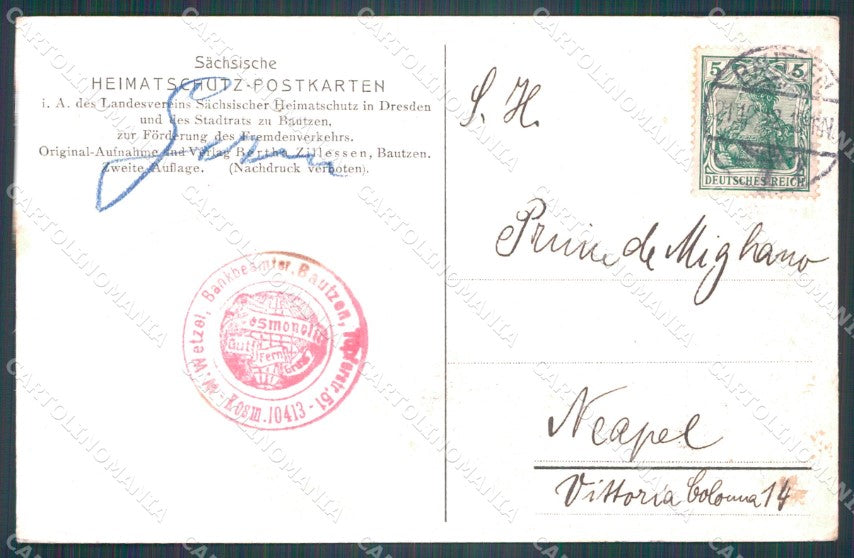 Sächsische
HEIMATSCHUTZ-POSTKARTEN
i. A. des Landesvereins Sächsischer Heimatschutz in Dresden
und des Stadtrats zu Bautzen,
zur Förderung des Fremdenverkehrs.
Original-Aufnahme und Verlag Bertha Zillessen, Bautzen.
Zweite Auflage. (Nachdruck verboten).
W. Wetzel, Bankbeamter, Bautzen, Töpferstr. 51
Kosm. 10413
Kosmopolit
Gut
Fern
Gruss
S. H.
5 5
DEUTSCHES REICH
BAUTZEN
Prince de Mighano
Neapel
Vittoria Colonna 14
CARTOLINOMANIA